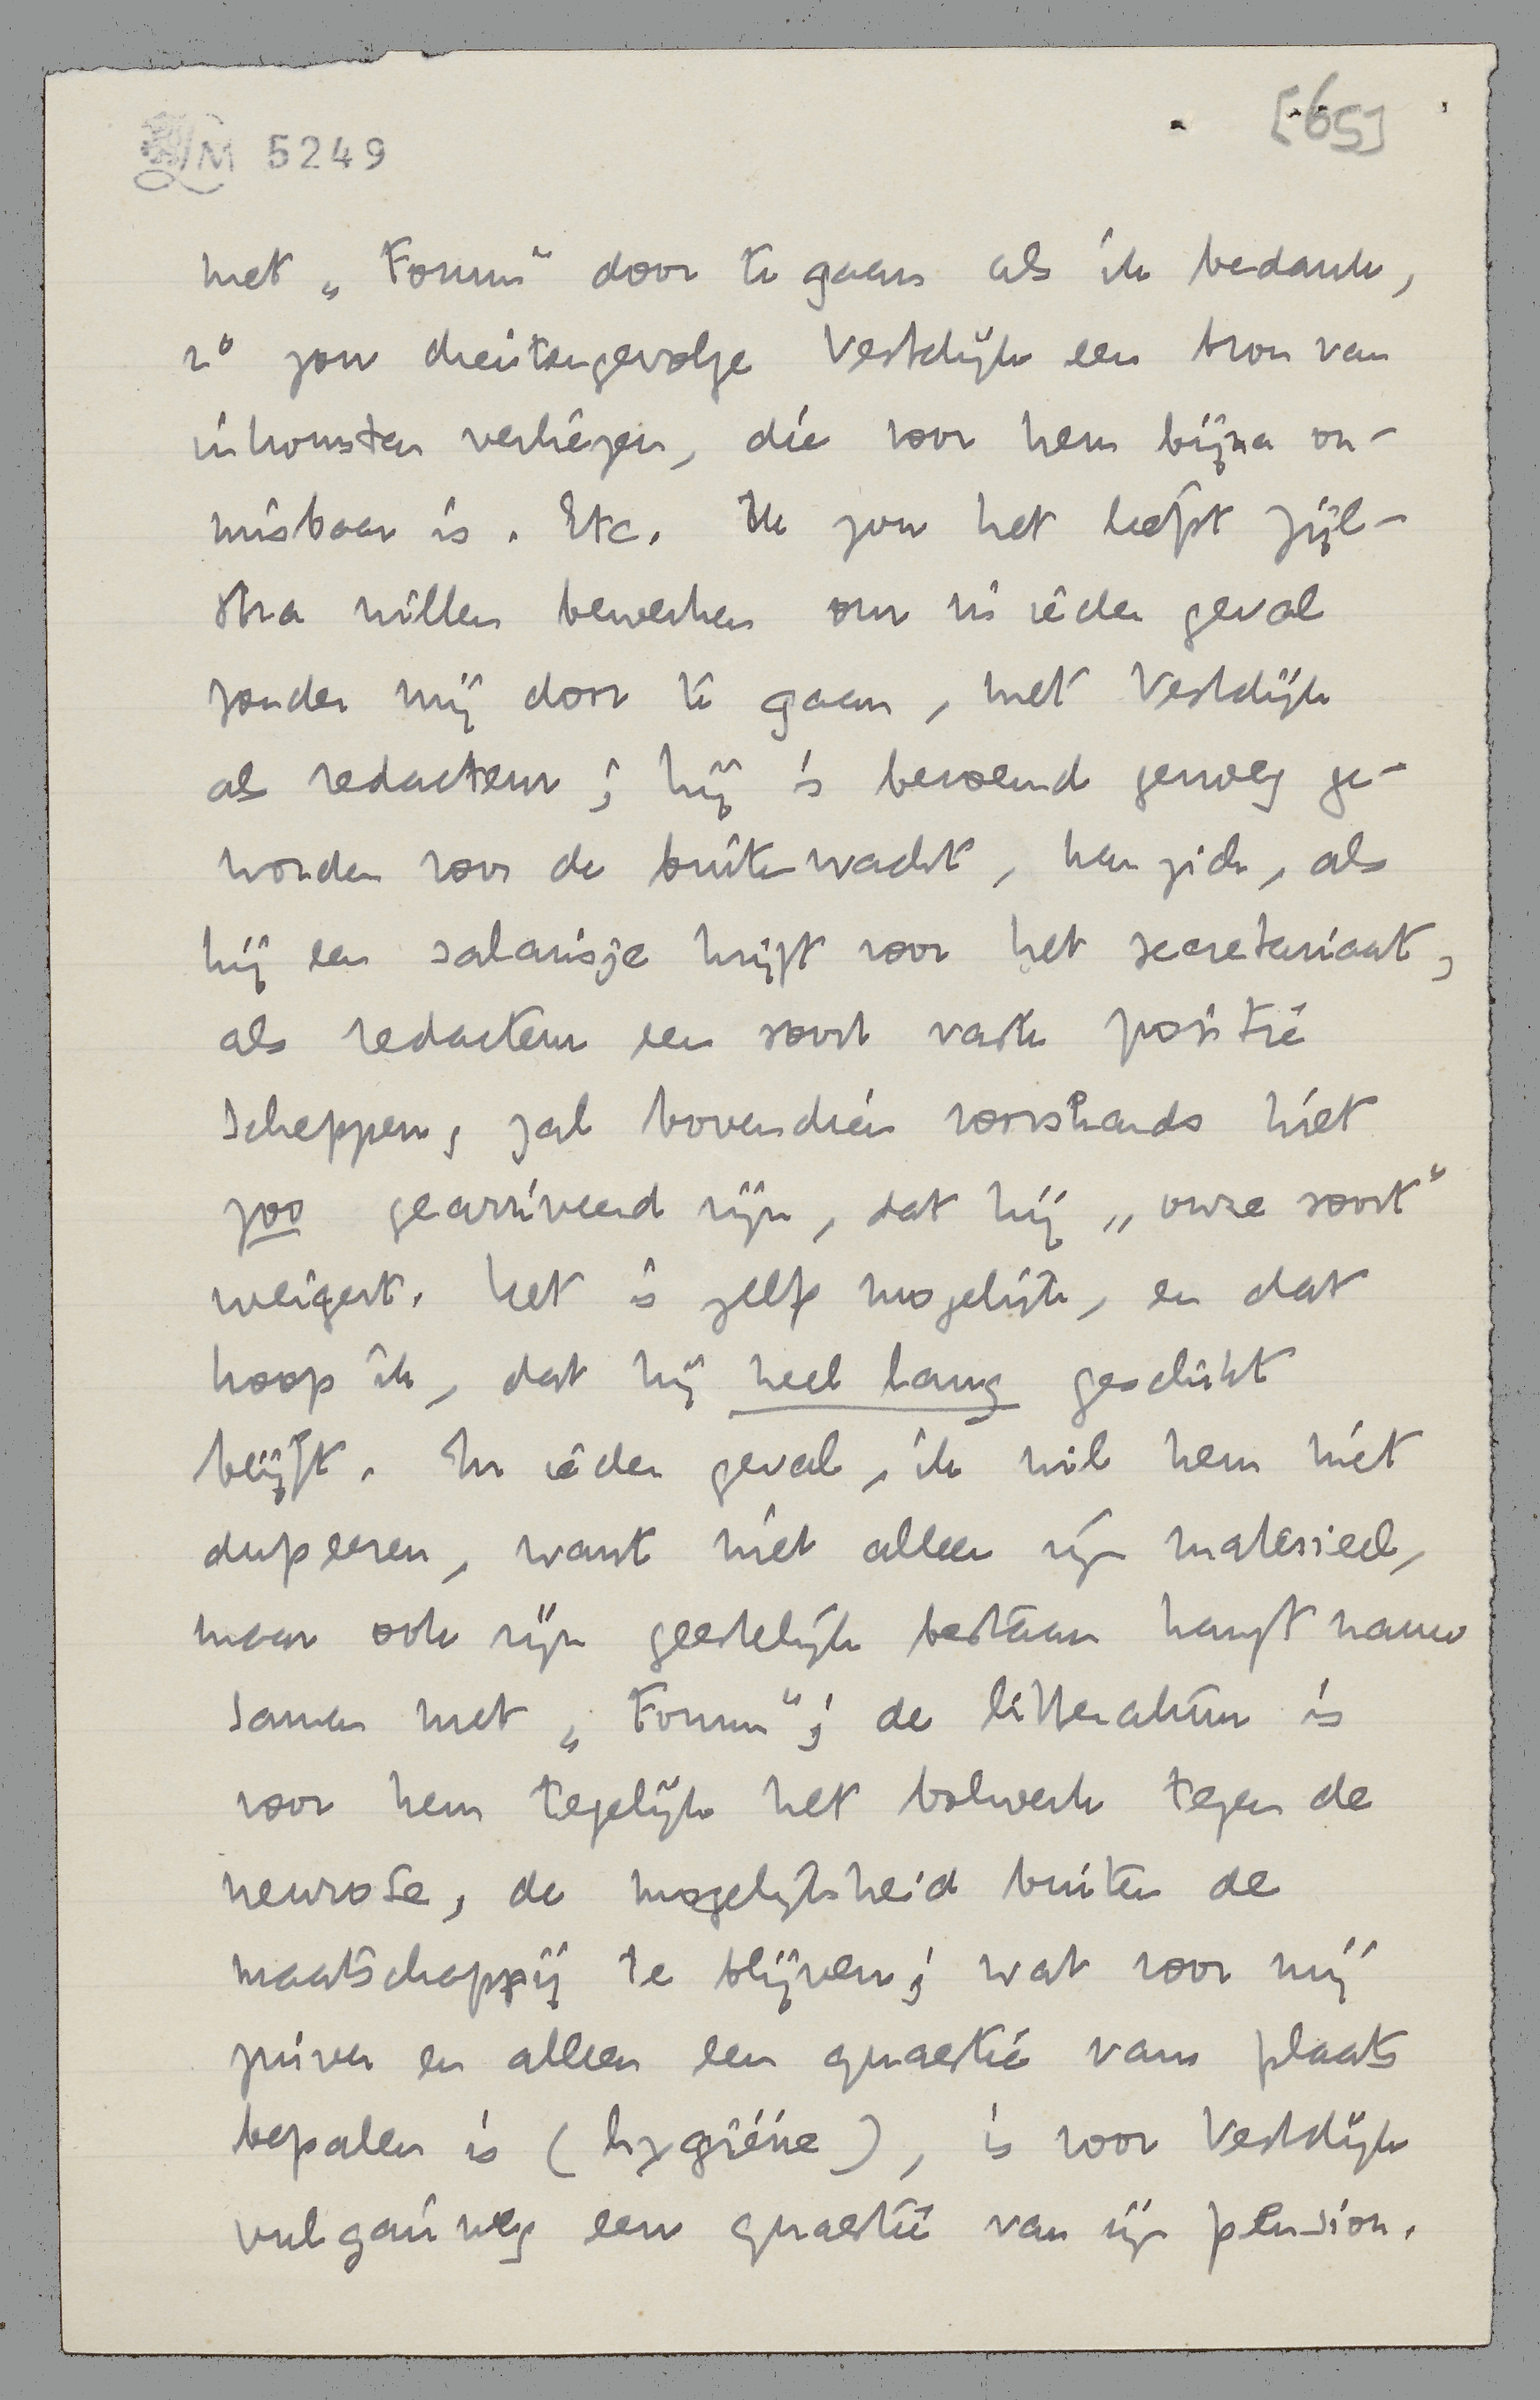 LM 5249
[65]
met „Forum" door te gaan als ik bedank,
2° zou dientengevolge Vestdijk een bron van
inkomsten verliezen, die voor hem bijna on-
misbaar is. Etc. Ik zou het liefst Zijl-
stra willen bewerken om in ieder geval
zonder mij door te gaan, met Vestdijk
als redacteur; hij is beroemd genoeg ge-
worden voor de buitenwacht, kan zich, als
hij een salarisje krijgt voor het secretariaat,
als redacteur een soort vaste positie
scheppen, zal bovendien voorshands niet
zoo gearriveerd zijn, dat hij „onze soort"
weigert. Het is zelfs mogelijk, en dat
hoop ik, dat hij heel lang geschikt
blijft. In ieder geval, ik wil hem niet
dupeeren, want niet alleen zijn materieel,
maar ook zijn geestelijk bestaan hangt nauw
samen met „Forum"; de litteratuur is
voor hem tegelijk het bolwerk tegen de
neurose, de mogelijkheid buiten de
maatschappij te blijven; wat voor mij
zuiver en alleen een quaestie van plaats
bepalen is (hygiëne), is voor Vestdijk
vulgairweg een quaestie van zijn pension.